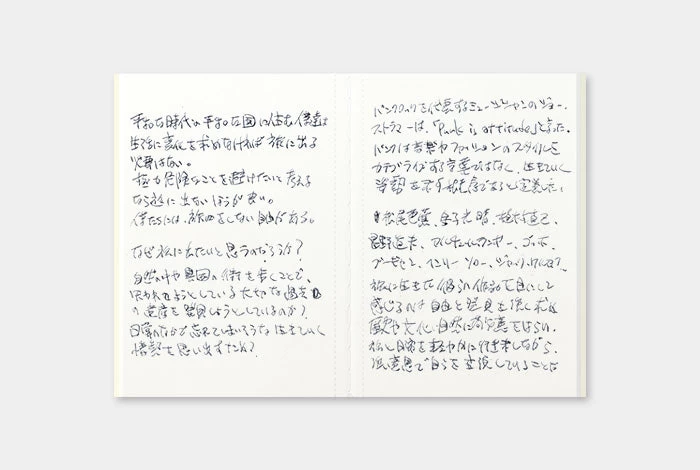 平和な時代の平和な国に住む僕達は
生活に変化を求めなければ旅に出る
必要はない。
極力危険なことを避けたいと考える
なら旅に出ないほうが良い。
僕たちには、旅をしない自由がある。
なぜ旅に出たいと思うのだろうか?
自然の中や異国の街を歩くことで、
失われようとしている大切な過去
の遺産を発見しようとしているのか?
日常のなかで忘れてしまいそうな 生きていく
情熱を思い出すため?
パンクロックを代表するミュージシャンのジョー・
ストラマーは、「Punk is attitude」と言った。
パンクは音楽やファッションのスタイルを
カテゴライズする言葉ではなく、生きていく
姿勢を示す態度であると定義した。
松尾芭蕉、金子光晴、植村直己、
星野道夫、ゴッホ、
ヘンリー・ソロー、ジャック・ケルアック。
旅に生きた彼らの作品を目にして
感じるのは自由と発見を強く求め
歴史や文化、自然に敬意をはらい、
旅と日常を軽やかに行き来しながら、
強い意思で自らを変換していることだ